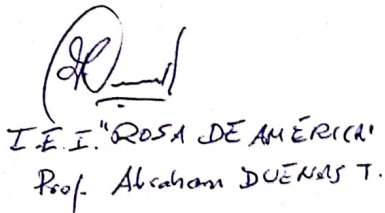 I.E.I. "ROSA DE AMÉRICA"
Prof. Abraham DUEÑAS T.